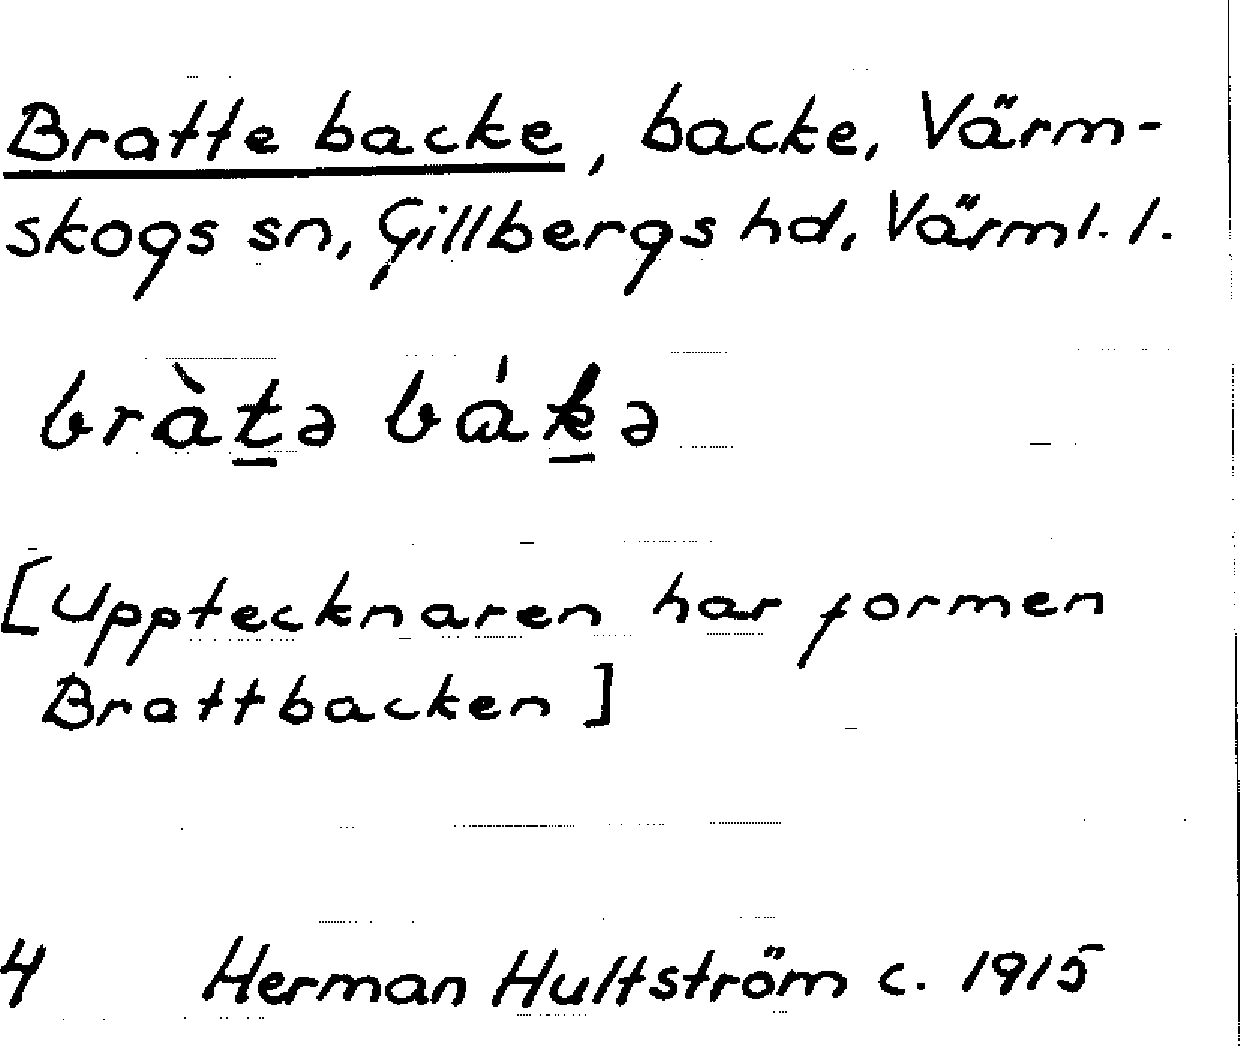 Bratte backe, backe, Värm-
skogs sn, Gillbergs hd, Värml. l.
bràt̲ə bák̲ə
[Upptecknaren har formen
Brattbacken]
4 Herman Hultström c. 1915